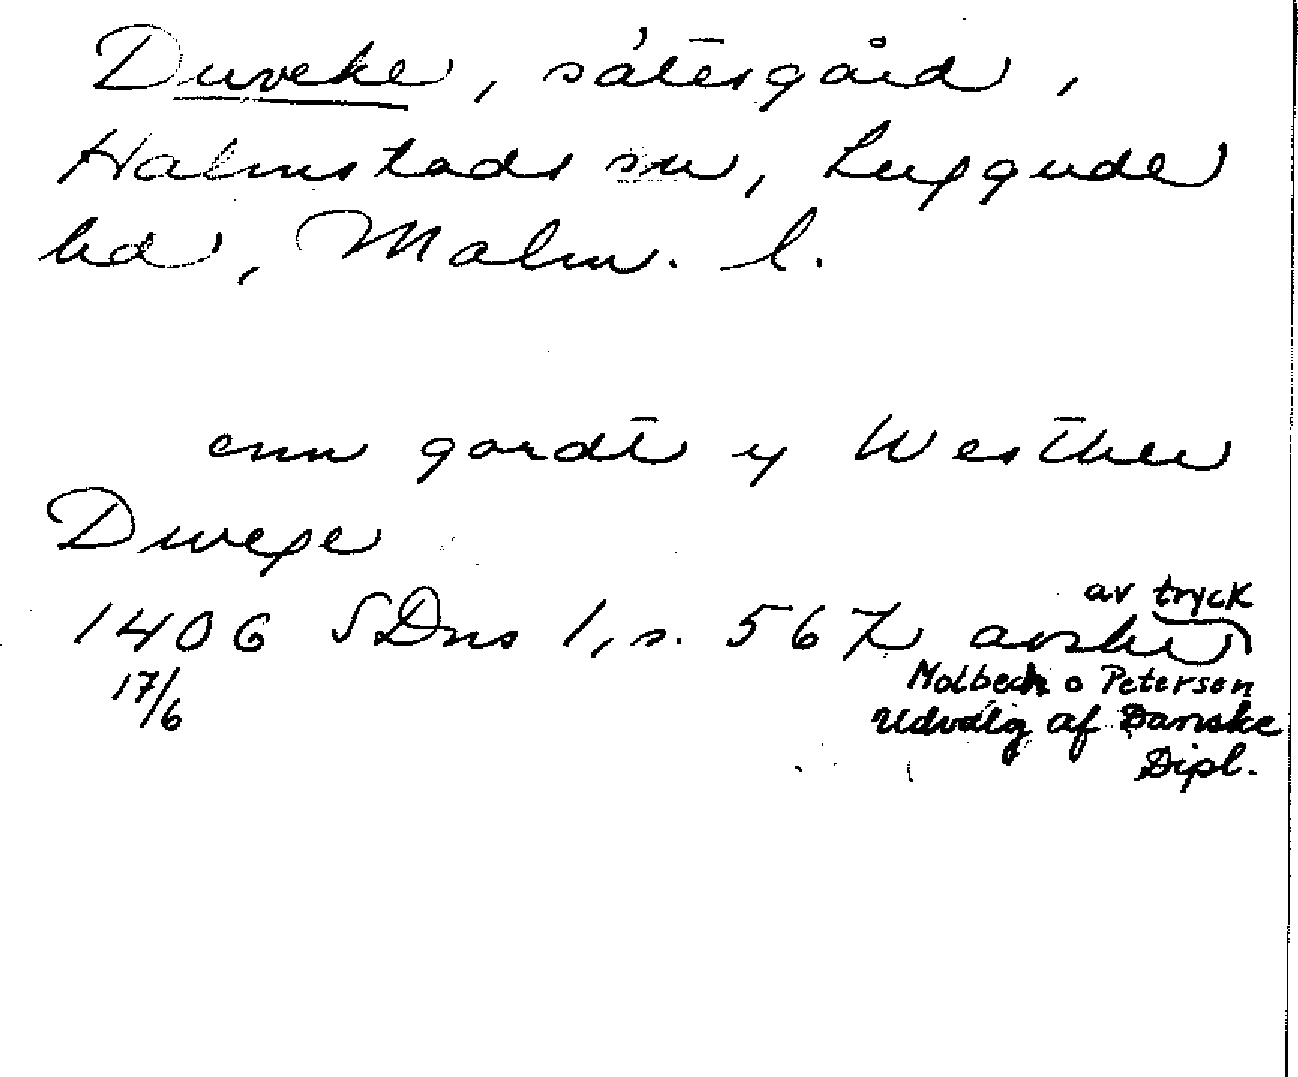 Duveke, sätesgård,
Halmstads sn, Luggude
hd, Malm. l.
enn gardt y Westher
Duwege
1406 SDns 1, s. 567 avskr av tryck
17/6
Molbech o Petersen
Udvalg af Danske
Dipl.